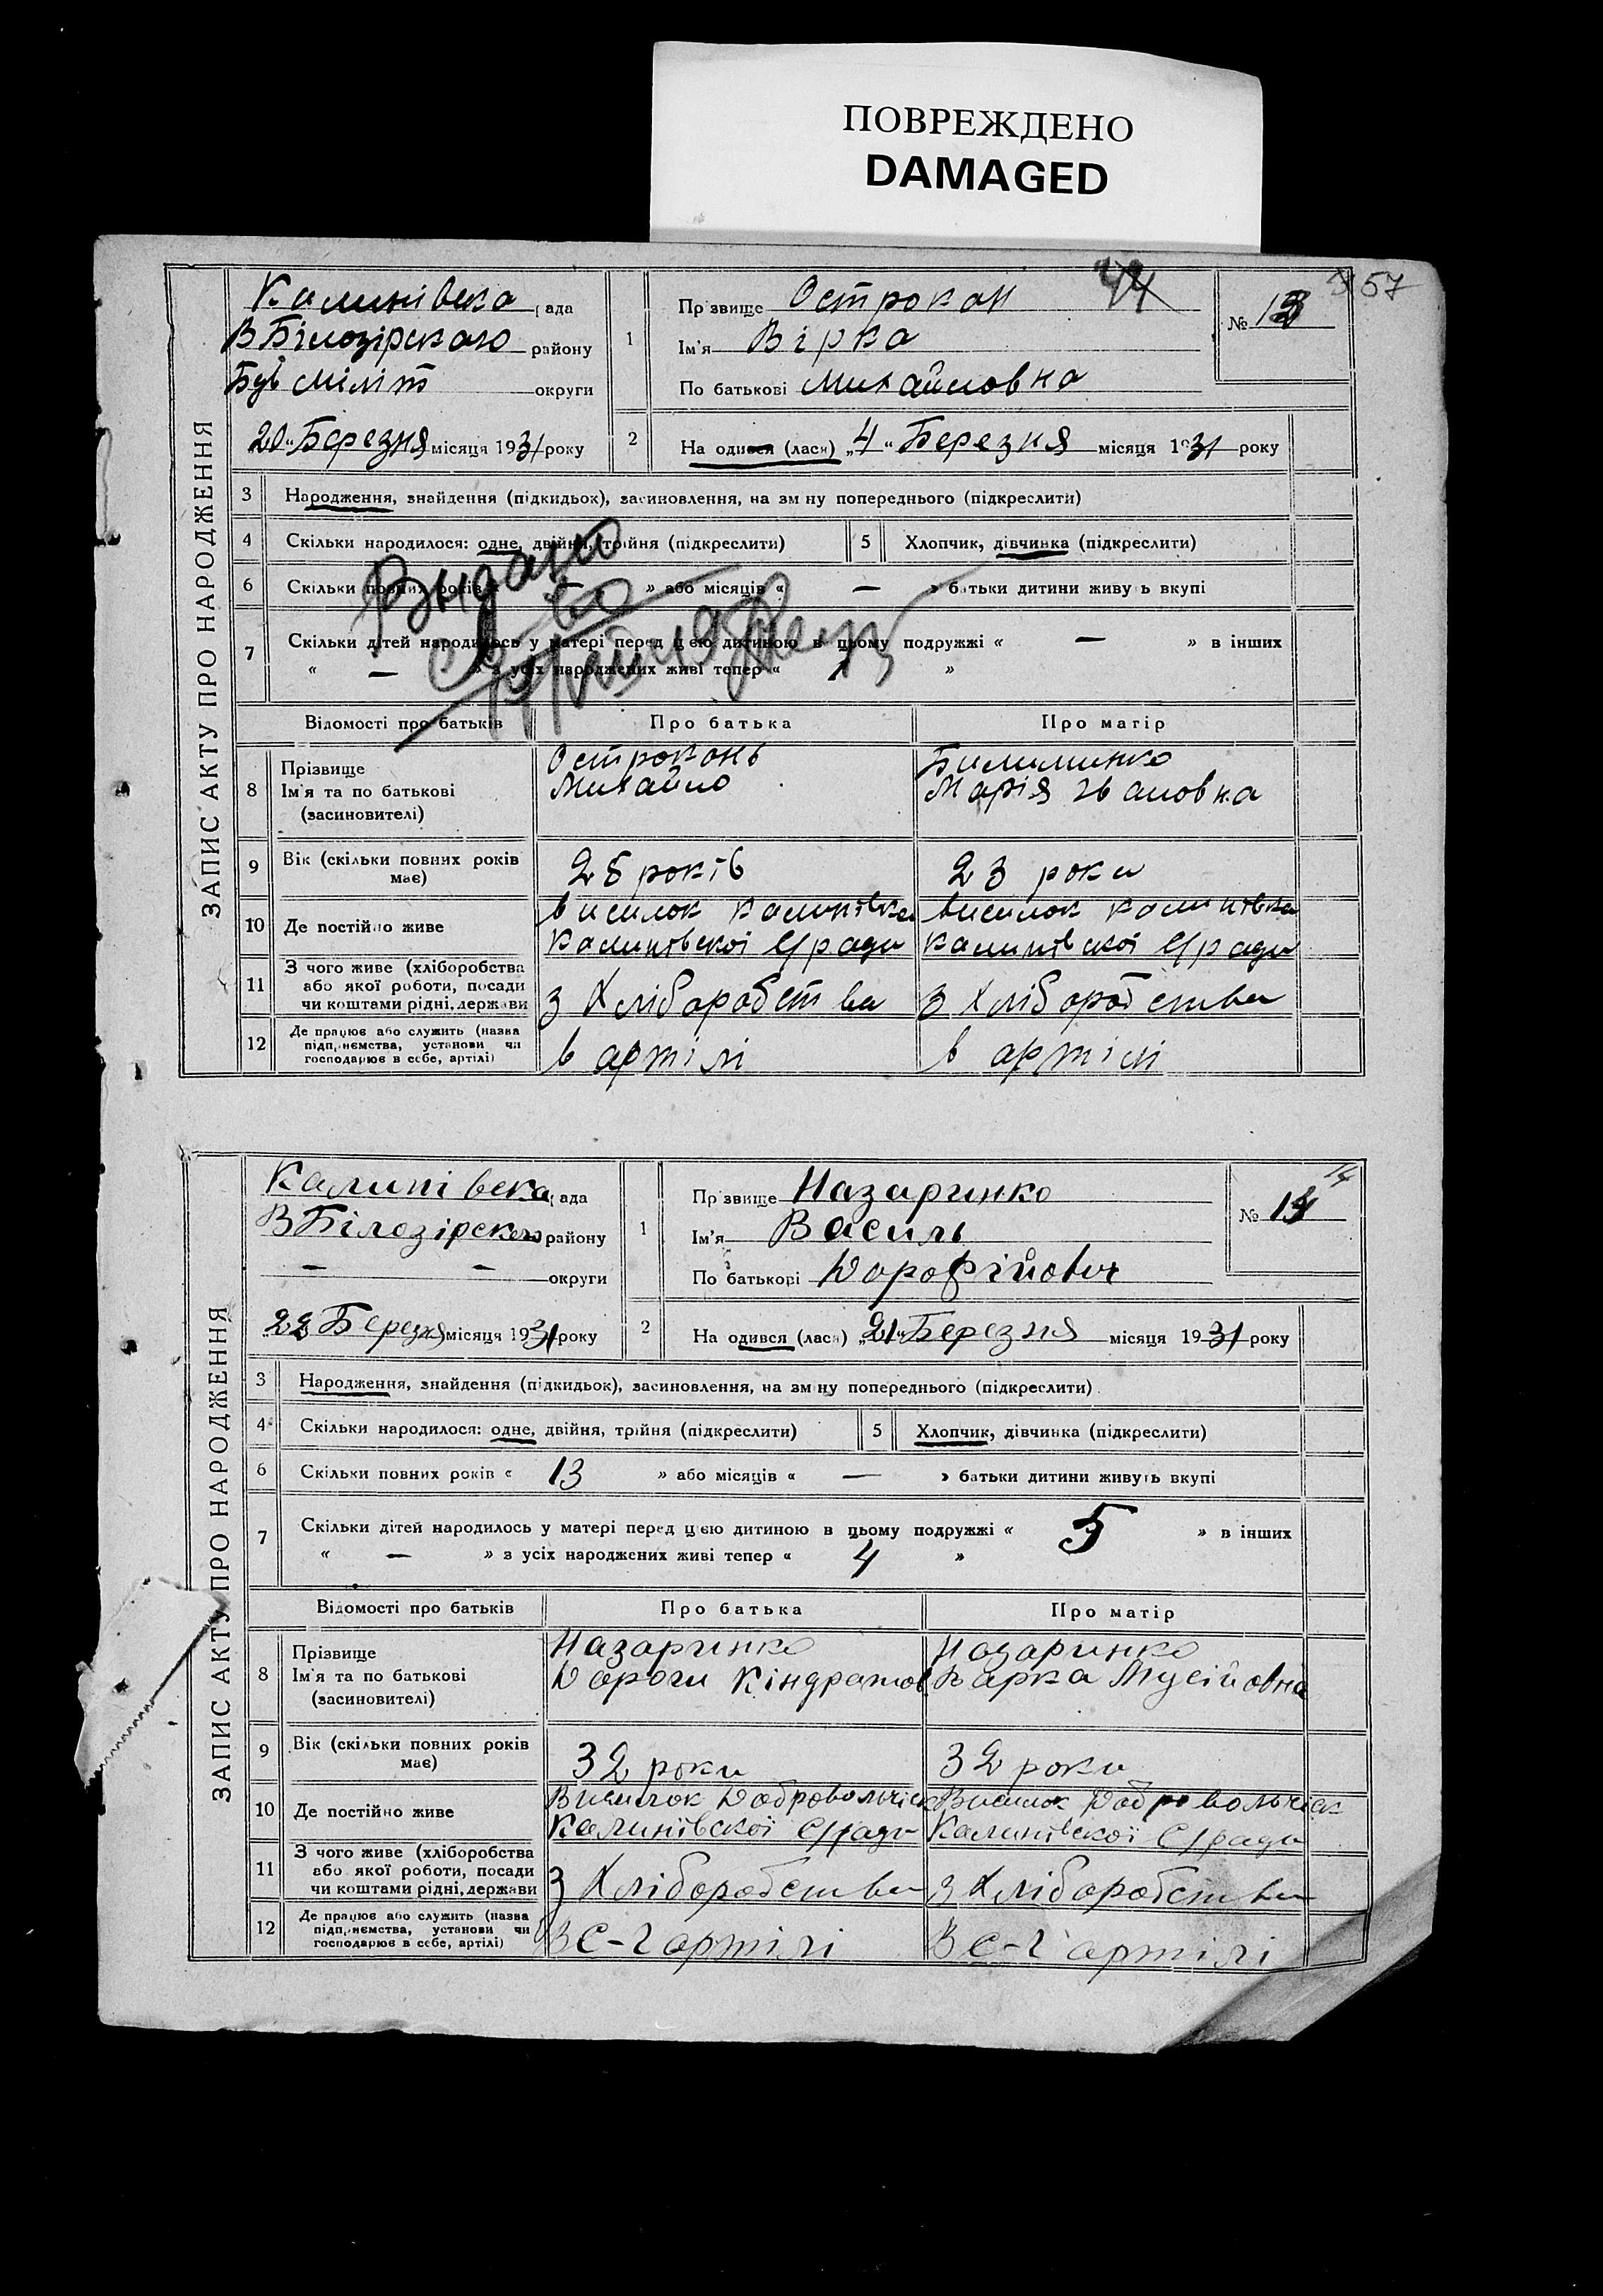 ПОВРЕЖДЕНО
DAMAGED
57
ЗАПИС АКТУ ПРО НАРОДЖЕННЯ
Калинівска рада
ВБілозірского району
округи
20 Березня місяця 1931 року
1
Прізвище Острокон
Ім'я Вірка
По батькові Михайловна
№ 13
2
На одився (лася) „4" Березня місяця 1931 року
3 Народження, знайдення (підкидьок), засиновлення, на зміну попереднього (підкреслити)
4 Скільки народилося: одне, двійня, трійня (підкреслити)
5 Хлопчик, дівчинка (підкреслити)
6 Скільки повних років « » або місяців « — » батьки дитини живуть вкупі
Видано
7 Скільки дітей народилось у матері перед цією дитиною в цьому подружжі « — » в інших
« — » з усіх народжених живі тепер « »
Відомості про батьків Про батька Про матір
8 Прізвище
Ім'я та по батькові
(засиновителі)
Острокань
Михайло
Марія Івановна
9 Вік (скільки повних років
має)
років
23 роки
10 Де постійно живе
висилок Калинівка
Калинівскої С/ради
висилок Калинівка
Калинівскої С/ради
11 З чого живе (хліборобства
або якої роботи, посади
чи коштами рідні, держави
З Хліборобства
З Хліборобства
12 Де працює або служить (назва
підприємства, установи чи
господарює в себе, артілі)
в артілі
в артілі
ЗАПИС АКТУ ПРО НАРОДЖЕННЯ
Калинівска рада
ВБілозірского району
— — округи
22 Березня місяця 1931 року
1
Прізвище Назаринко
Ім'я Василь
По батькові Дорофійович
№ 14
14
2
На одився (лася) „21" Березня місяця 1931 року
3 Народження, знайдення (підкидьок), засиновлення, на зміну попереднього (підкреслити)
4 Скільки народилося: одне, двійня, трійня (підкреслити)
5 Хлопчик, дівчинка (підкреслити)
6 Скільки повних років « 13 » або місяців « — » батьки дитини живуть вкупі
7 Скільки дітей народилось у матері перед цією дитиною в цьому подружжі « 5 » в інших
« — » з усіх народжених живі тепер « 4 »
Відомості про батьків Про батька Про матір
8 Прізвище
Ім'я та по батькові
(засиновителі)
Назаринко
Дорош Кіндратов
Назаринко
Варка Мусійовна
9 Вік (скільки повних років
має)
32 роки
32 роки
10 Де постійно живе
Висилок
Калинівскої С/ради
Висилок
Калинівскої С/ради
11 З чого живе (хліборобства
або якої роботи, посади
чи коштами рідні, держави
З Хліборобства
З Хліборобства
12 Де працює або служить (назва
підприємства, установи чи
господарює в себе, артілі)
В С-Г артілі
В С-Г артілі